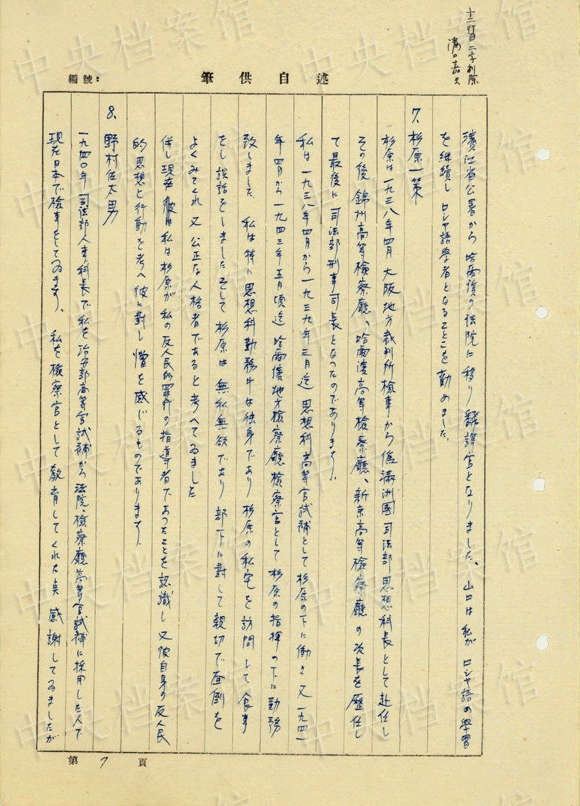 十二行目二字削除
溝口嘉夫
編號:
筆供自述
濱江省公署から哈尓濱の法院に移り飜譯官となりました、山口は私がロシヤ語の學習
を継續しロシヤ語學者となることを勸めました。
7. 杉原一策
杉原は一九三八年四月大阪地方裁判所檢事から偽満洲國司法部思想科長として赴任し
その後錦州高等檢察廳、哈尓濱高等檢察廳、新京高等檢察廳の次長を歴任し
て最後に司法部刑事司長となったのであります。
私は一九三八年四月から一九三九年三月迄思想科高等官試補として杉原の下に働き又一九四一
年四月から一九四三年五月頃迄哈尓濱地方檢察廳檢察官として杉原の指揮の下に勤務
致しました。私は特に思想科勤務中は独身であり杉原の私宅を訪問して食事
をし談話をしました。そして杉原は無私無欲であり部下に對して親切で面倒を
よくみてくれ又公正な人格者であると考へてゐました
併し現在私は杉原が私の反人民的罪行の指導者であったことを認識し又彼自身の反人民
的思想と行動を考へ彼に對し憎を感じるものであります。
8. 野村佐太男
一九四〇年司法部人事科長で私を治安部高等官試補から法院檢察廳高等官試補に採用した人で
現在日本で檢事をしてゐます、私を檢察官として教育してくれた点感謝してゐましたが
第 7 頁
中央档案馆